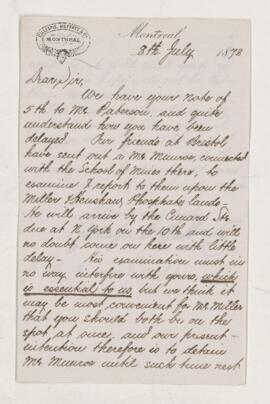 MONTREAL
Montreal
8th July 1878
Dear Sir,
We have your note of
5th to Mr Paterson, and quite
understand how you have been
delayed. Our friends at Bristol
have sent out a Mr Munroe, connected
with the School of Mines there, to
examine & report to them upon the
Miller & Phosphate lands-
He will arrive by the Cunard Str
due at N. York on the 10th and will
no doubt come on here with little
delay - His examination must in
no way interfere with yours, which
is essential to us, but we think it
may be most convenient for Mr Miller
that you should both be on the
spot at once, and our present
intention therefore is to detain
Mr Munroe until such time next